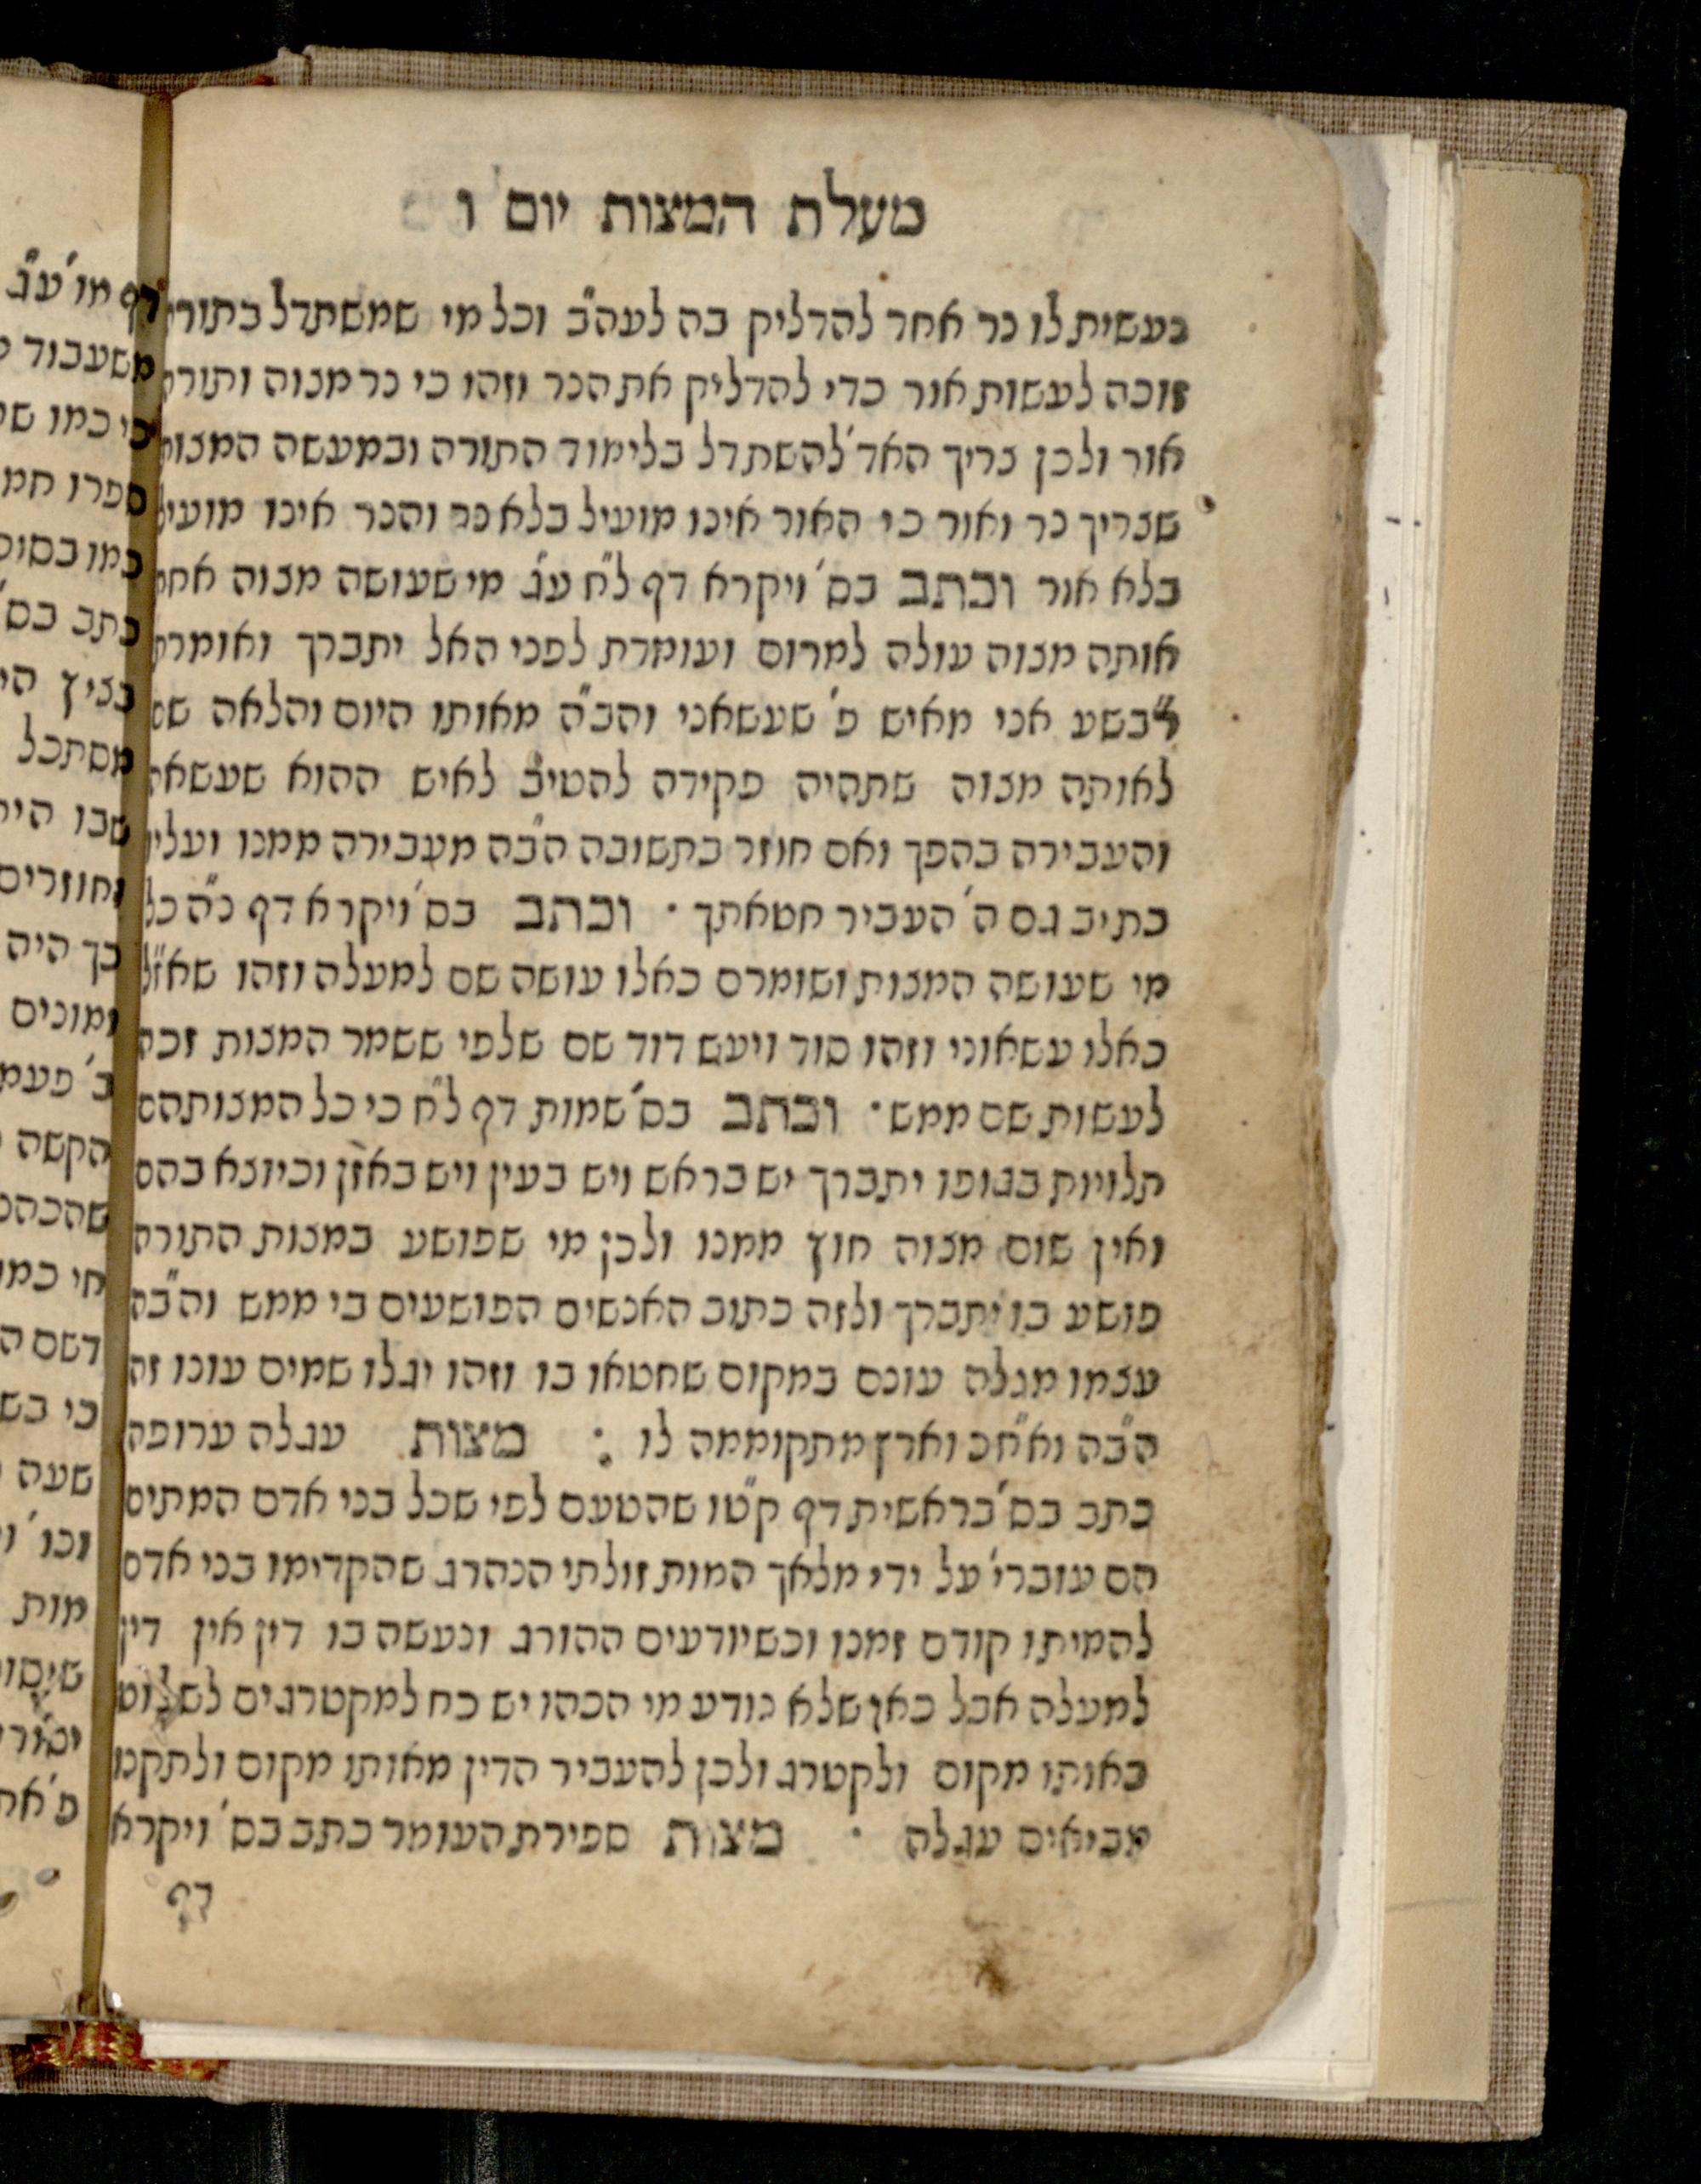 מעלת המצות יום ו
נעשית לו נר אחד להדליק בה לעה"ב וכל מי שמשתדל בתורה
זוכה לעשות אור כדי להדליק את הנר וזהו כי נר מצוה ותורה
אור ולכן צריך האד' להשתדל בלימוד התורה ובמעשה המצות
שצריך נר ואור כי האור אינו מועיל בלא נר והנר אינו מועיל
בלא אור וכתב בס' ויקרא דף ל"ח ע"ג מי שעושה מצוה אחת
אותה מצוה עולה למרום ועומדת לפני האל יתברך ואומרת
לבשע אני מאיש פ' שעשאני והב"ה מאותו היום והלאה שם
לאותה מצוה שתהיה פקידה להטיב לאיש ההוא שעשאה
והעבירה בהפך ואם חוזר בתשובה הב"ה מעבירה ממנו ועליו
כתיב גם ה' העביר חטאתך · וכתב בס' ויקרא דף כ"ה כל
מי שעושה המצות ושומרם כאלו עושה שם למעלה וזהו שאז"ל
כאלו עשאוני וזהו סוד ויעש דוד שם שלפי ששמר המצות זכה
לעשות שם ממש · וכתב בס' שמות דף ל"ח כי כל המצות הם
תלויות בגופו יתברך יש בראש ויש בעין ויש באזן וכיוצא בהם
ואין שום מצוה חוץ ממנו ולכן מי שפושע במצות התורה
פושע בו יתברך ולזה כתוב האנשים הפושעים בי ממש והב"ה
עצמו מגלה עונם במקום שחטאו בו וזהו יגלו שמים עונו זה
הב"ה וא"חכ וארץ מתקוממה לו : מצות עגלה ערופה
כתב בס' בראשית דף קט"ו שהטעם לפי שכל בני אדם המתים
הם עוברי' על ידי מלאך המות זולתי הנהרג שהקדימו בני אדם
להמיתו קודם זמנו וכשיודעים ההורג ונעשה בו דין אין דין
למעלה אבל כאן שלא נודע מי הכהו יש כח למקטרגים לשלוט
באותו מקום ולקטרג ולכן להעביר הדין מאותו מקום ולתקנו
מביאים עגלה · מצות ספירת העומר כתב בס' ויקרא
דף